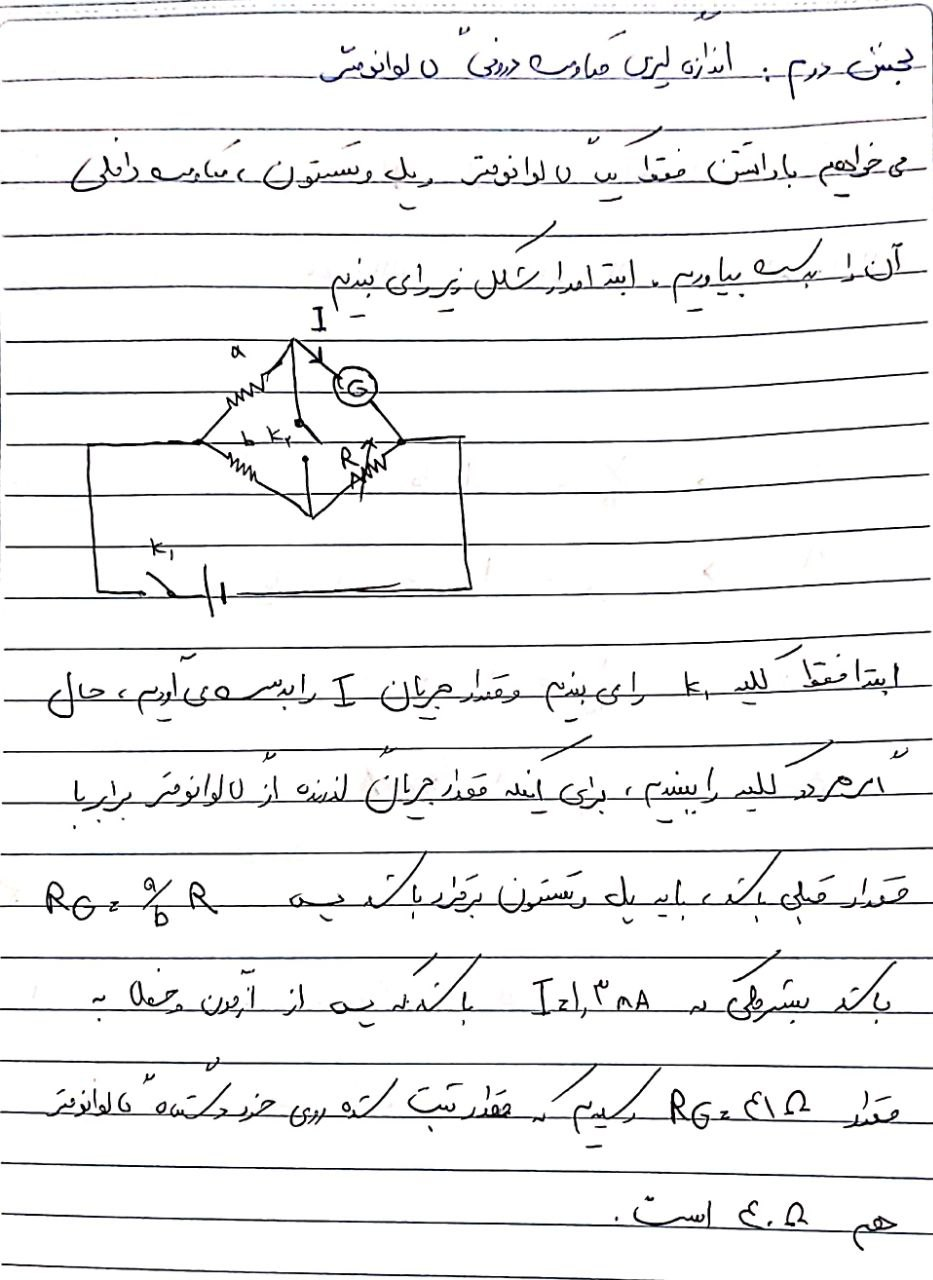 بخش دوم : اندازه گیری مقاومت درونی گالوانومتر
می خواهیم با داشتن فقط یک گالوانومتر و پل وتستون ، مقاومت داخلی
آن را بدست بیاوریم . ابتدا مدار شکل زیر را می بندیم
I
a
G
b k₂
R
k₁
ابتدا فقط کلید k₁ را می بندیم و مقدار جریان I را بدست می آوریم ، حال
اگر هر دو کلید را ببندیم ، برای اینکه مقدار جریان گذرنده از گالوانومتر برابر با
مقدار قبلی باشد ، باید پل وتستون برقرار باشد پس RG = a/b R
باشد بشرطی که I=۱,۳ mA باشد که پس از آزمون و خطا به
مقدار RG = ۴۱ Ω رسیدیم که مقدار ثبت شده روی خود دستگاه گالوانومتر
هم ۴۰ Ω است .